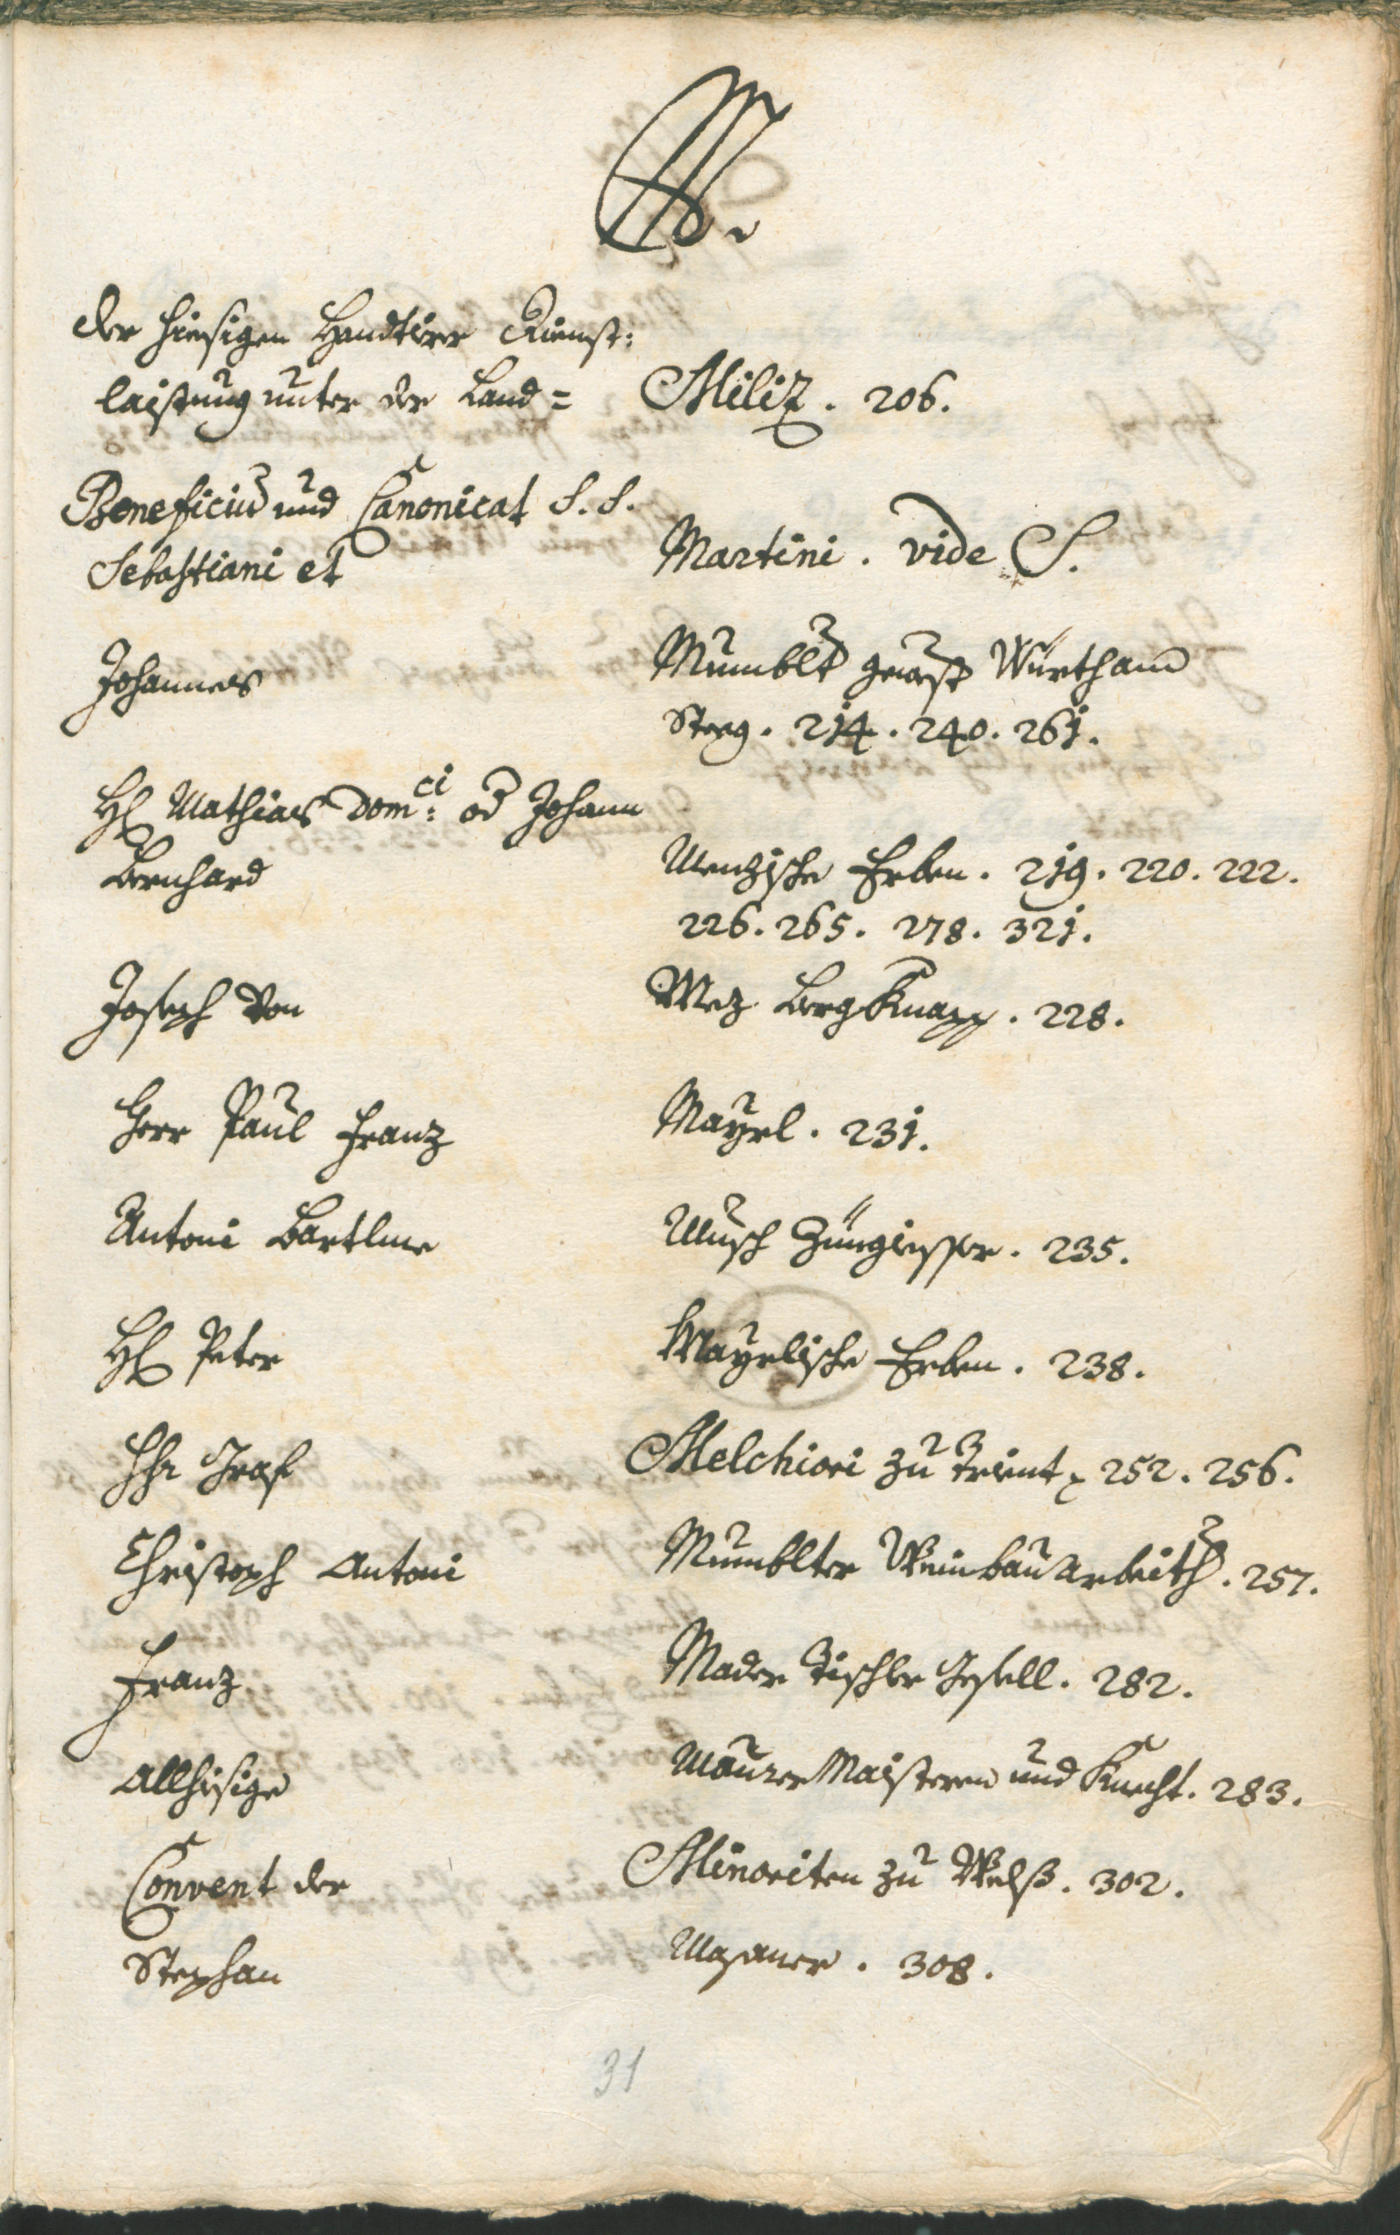 M.
der hiesigen Handtirer Dienst:
laistung unter der Land= Miliz. 206.
Beneficiu und Canonicat S. S.
Sebastiani et Martini. vide S.
Johannes Mumblt gewest Würth am
Steeg. 214. 240. 261.
H Mathias Dom:ci od Johann
Bernhard Menzische Erben. 219. 220. 222.
226. 265. 278. 321.
Joseph Von Mez BergKnapp. 228.
Herr Paul Franz Mayrl. 231.
Antoni Bartlme Musch Züngiesser. 235.
H Peter Mayrlische Erben. 238.
Hr Graf Melchiori zu Trient 252. 256.
Christoph Antoni Mumblter Weinbau arbeith. 257.
Franz Mader Tischler Gesell. 282.
Allhisige Maurer Maisteren und Knecht. 283.
Convent der Minoriten zu Welß. 302.
Stephan Masaner. 308.
31